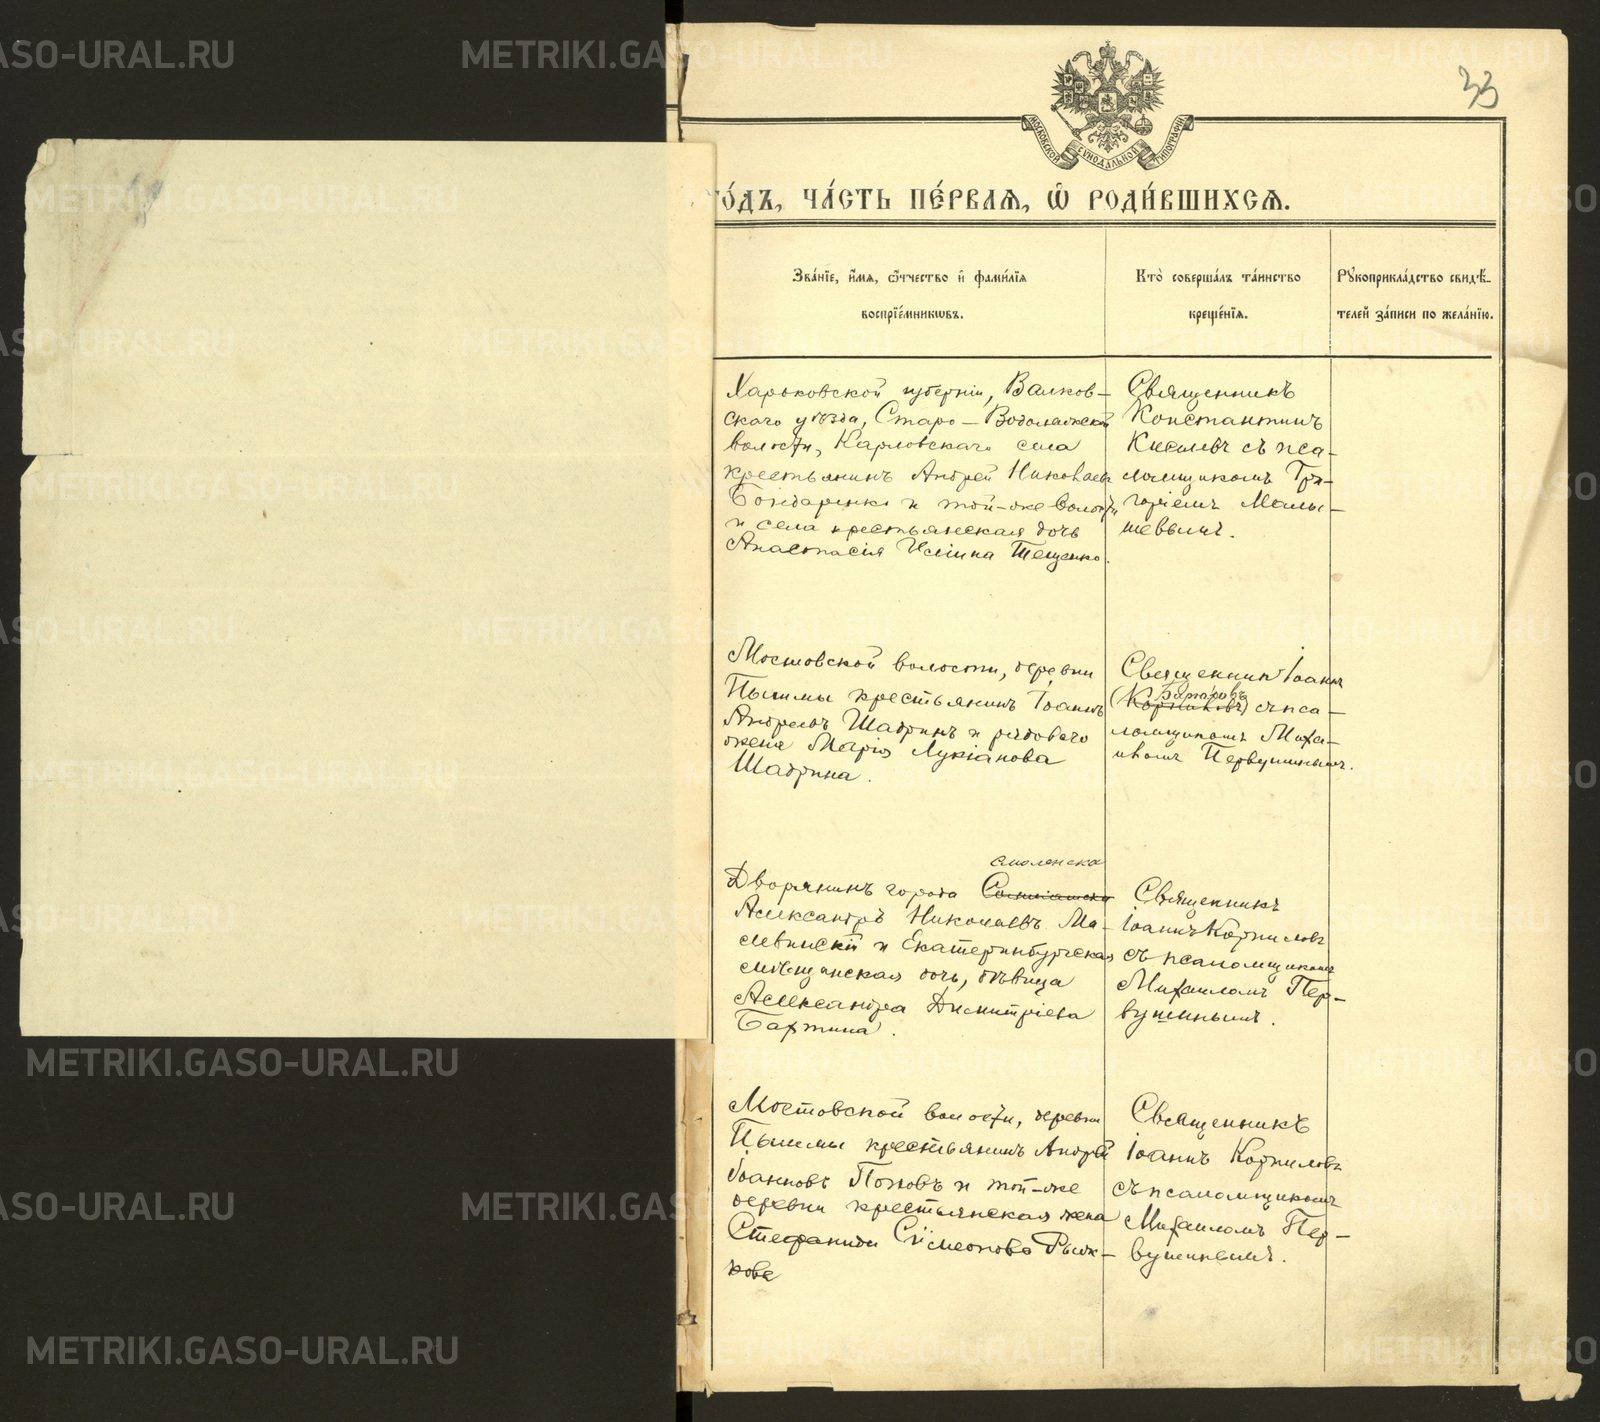 33
МОСКОВСКОЙ СѴНОДАЛЬНОЙ ТИПОГРАФІИ
го́дъ, ча́сть пе́рваѧ, ѡ҆ роди́вшихсѧ.
Зва́нїе, и҆́мѧ, ѻ҆́тчество и҆ фами́лїѧ
воспрїе́мникѡвъ.
Кто̀ соверша́лъ та́инство
креще́нїѧ.
Рꙋкоприкла́дство свидѣ́-
телей за́писи по жела́нїю.
Харьковской губерніи, Валков-
скаго уѣзда, Старо-Водолажской
волости, Карловскаго села
крестьянинъ Андрей Николаевъ
Бондаренко и той-же волости
и села крестьянская дочь
Анастасія Ильина Тещенко.
Священникъ
Константинъ
Киселевъ съ пса-
ломщикомъ Гри-
горіемъ Малы-
шевымъ.
Мостовской волости, деревни
Пышмы крестьянинъ Іоаннъ
Андреевъ Шадринъ и рядового
жена Марія Лукіанова
Шадрина.
Священник Іоаннъ
(Корниловъ) съ пса-
ломщикомъ Миха-
иломъ Первушинымъ.
Смоленска
Дворянинъ города
Александръ Николаевъ Ма-
левинскій и Екатеринбургская
мѣщанская дочь, дѣвица
Александра Димитріева
Бартина.
Священникъ
Іоаннъ Корниловъ
съ псаломщикомъ
Михаиломъ Пер-
вушинымъ.
Мостовской волости, деревни
Пышмы крестьянинъ Андрей
Іоанновъ Поповъ и той-же
деревни крестьянская жена
Стефанида Сѵмеонова Рыж-
кова
Священникъ
Іоаннъ Корниловъ
съ псаломщикомъ
Михаиломъ Пер-
вушинымъ.
METRIKI.GASO-URAL.RU